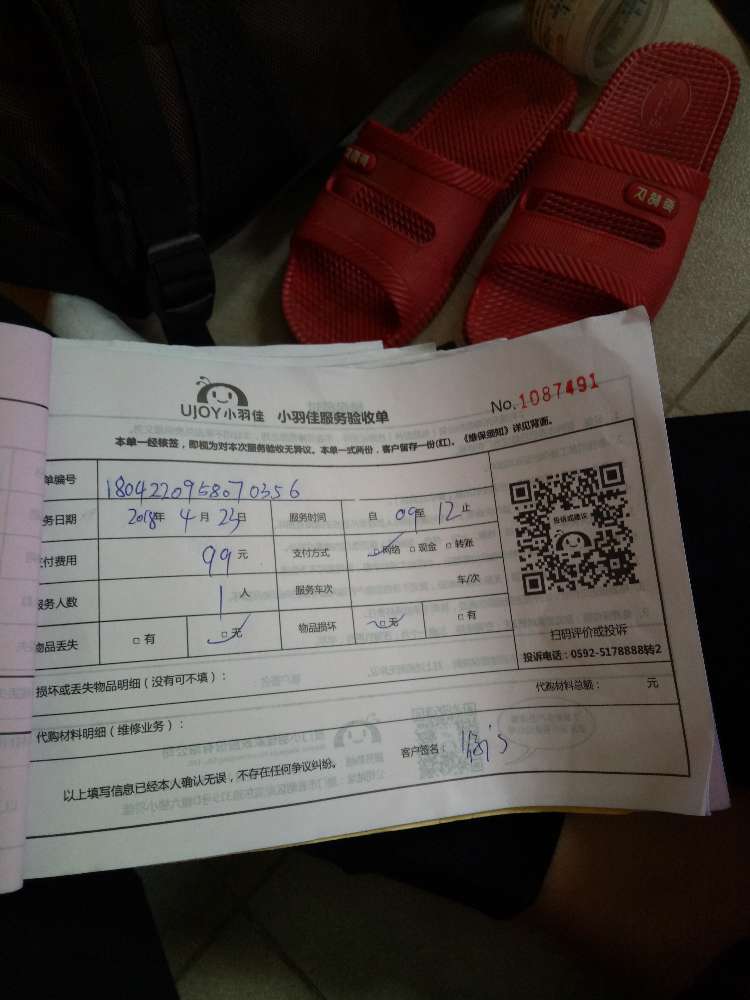 UJOY小羽佳 小羽佳服务验收单
No.1087491
本单一经核签，即视为对本次服务验收无异议。本单一式两份，客户留存一份(红)。《维保须知》详见背面。
单编号 1804220958070356
务日期 2018年 4月 23日 服务时间 自 09至 12止
付费用 99元 支付方式 □网络 □现金 □转账
服务人数 1人 服务车次 车/次
物品丢失 □有 □无 物品损坏 □无 □有
投诉或建议
扫码评价或投诉
投诉电话：0592-5178888转2
损坏或丢失物品明细（没有可不填）：
代购材料总额： 元
代购材料明细（维修业务）：
客户签名：
以上填写信息已经本人确认无误，不存在任何争议纠纷。